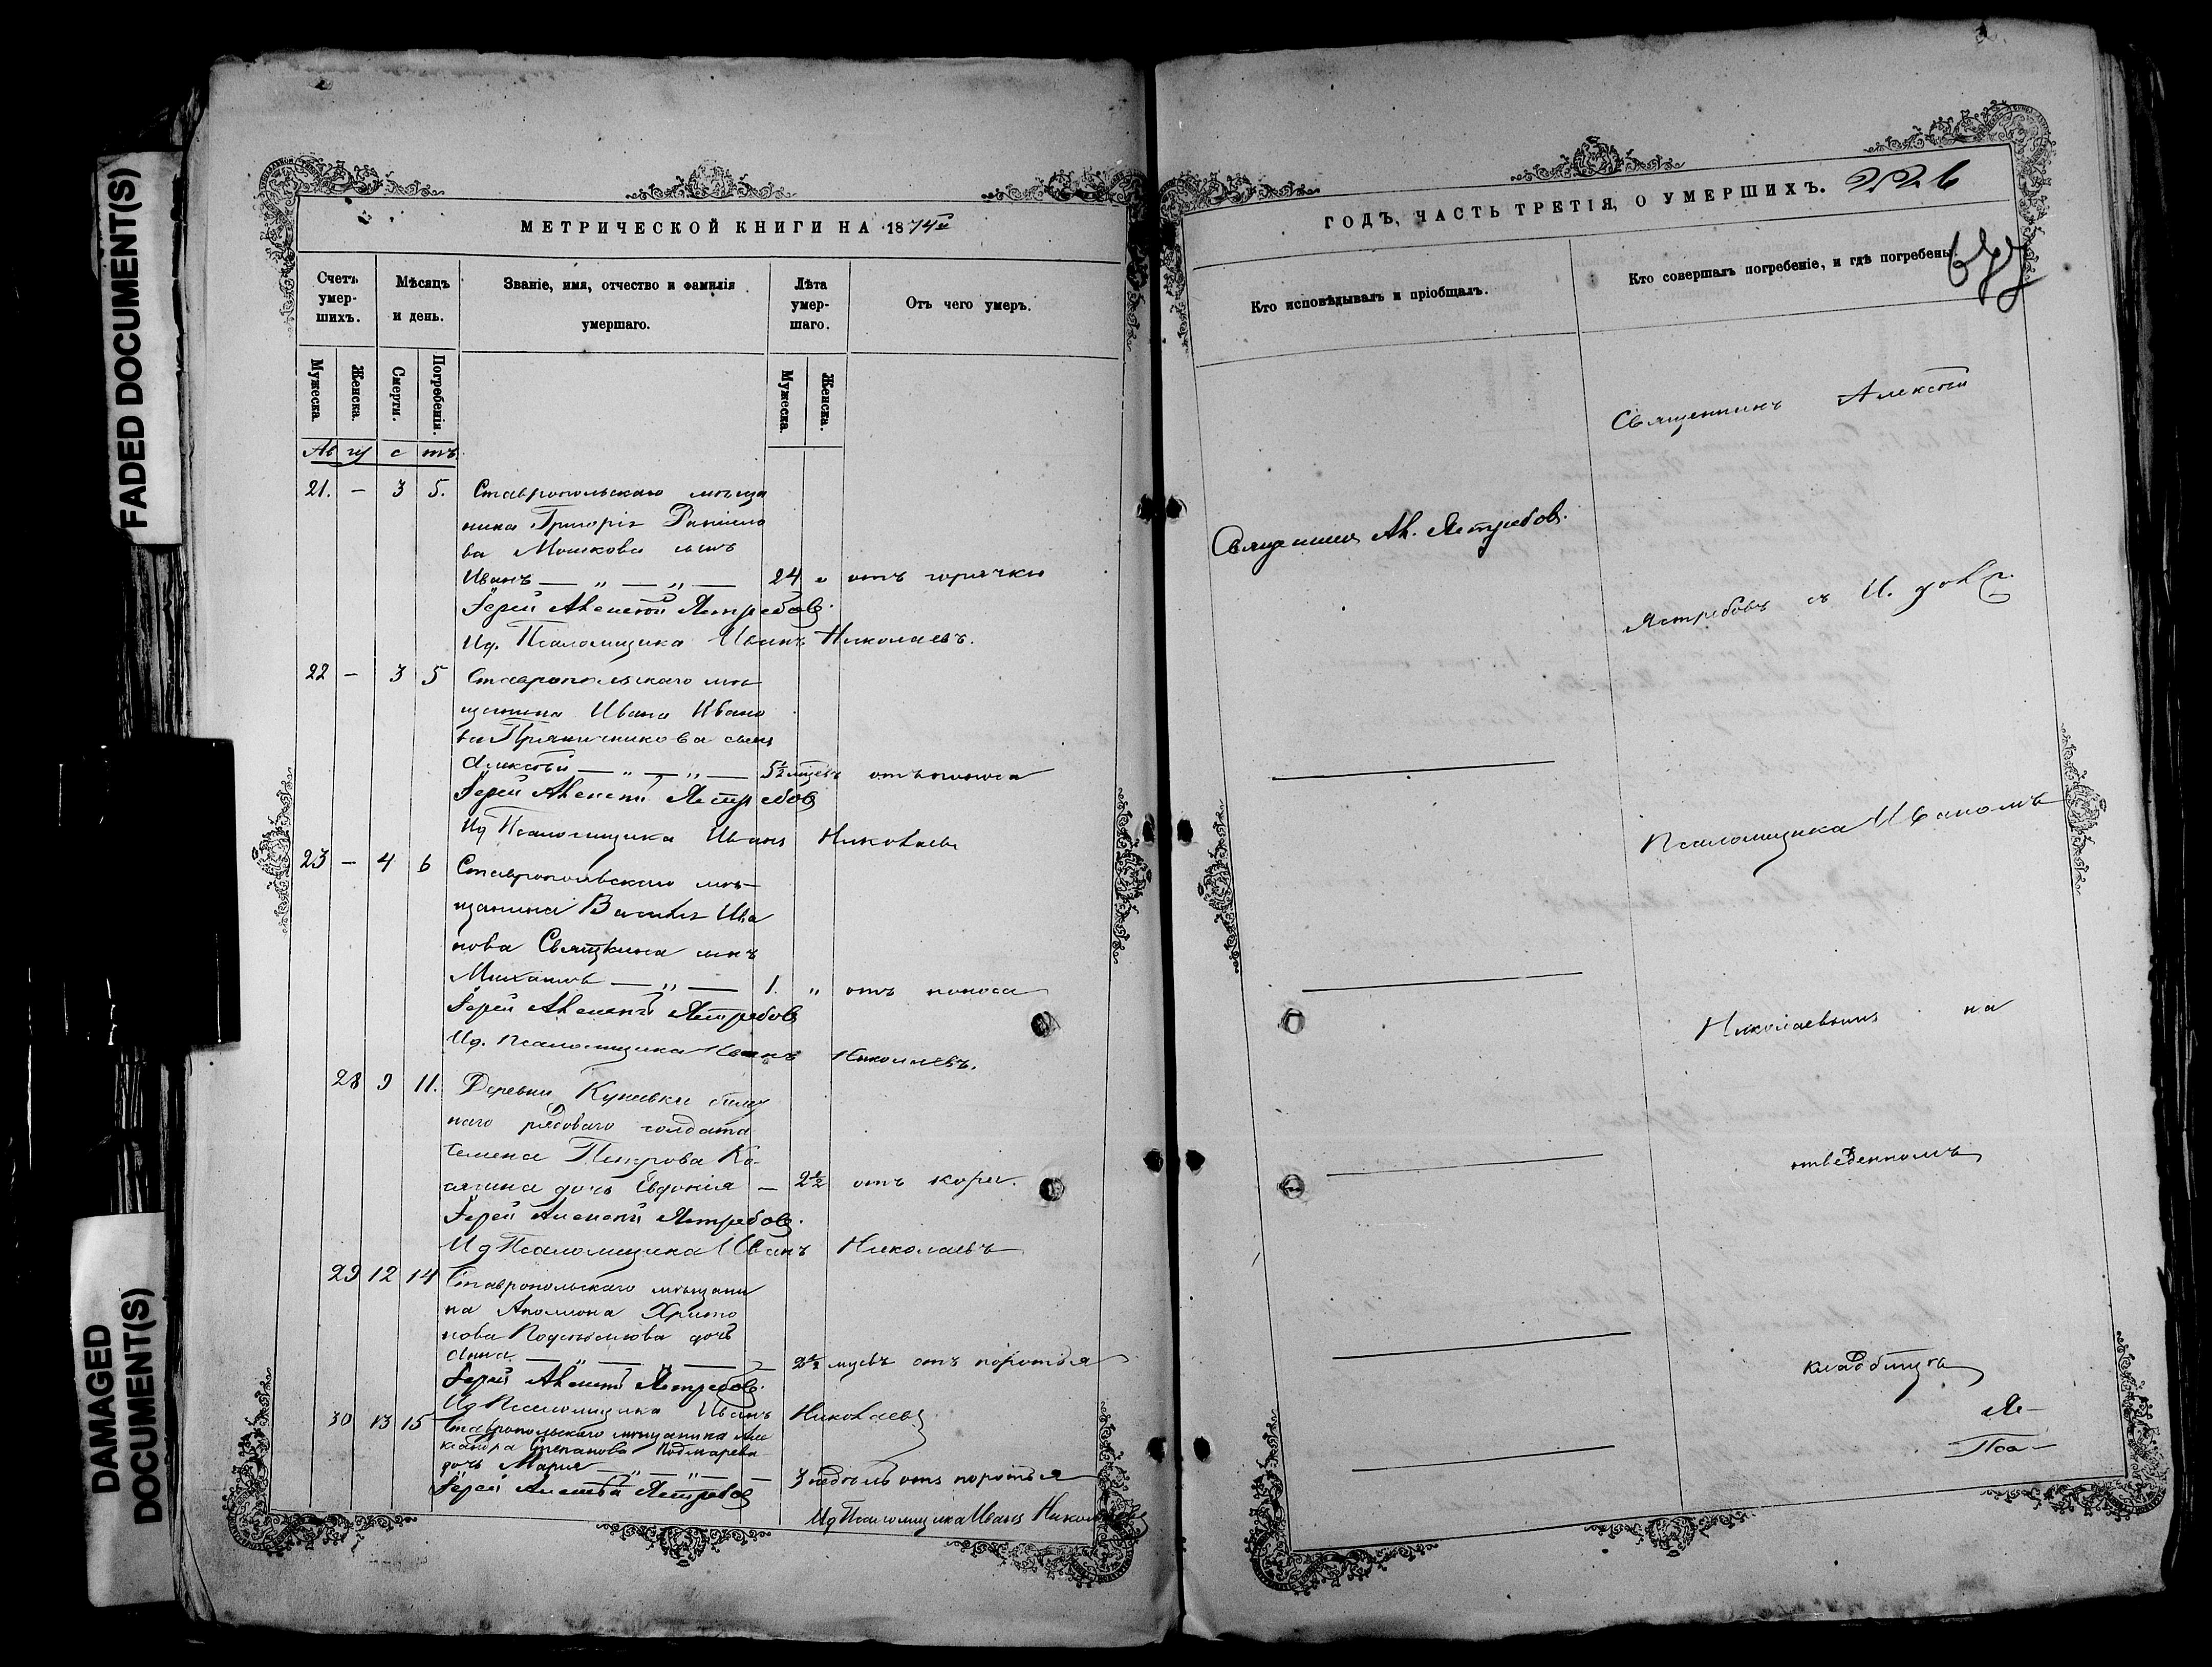 FADED DOCUMENT(S)
DAMAGED DOCUMENT(S)
МЕТРИЧЕСКОЙ КНИГИ НА 1874й
Счетъ умер-шихъ.
Мѣсяцъ и день.
Званіе, имя, отчество и фамилія умершаго.
Лѣта умер-шаго.
Отъ чего умеръ.
Мужеска.
Женска.
Смерти.
Погребенія.
Мужеска.
Женска.
Августъ
21. — 3 5. Ставропольскаго мѣща
нина Григорія Даніило
ва Мошкова сынъ
Иванъ — „ — „ — 24 „ отъ горячки
Іерей Алексѣй Ястребовъ.
Ид. Псаломщика Иванъ Николаевъ.
22 — 3 5 Ставропольскаго мѣ
щанина Ивана Ивано
ва Пряничникова сынъ
Алексѣй — „ — „ — 5½ мцевъ отъ поноса
Іерей Алексѣй Ястребовъ
Ид Псаломщика Иванъ Николаевъ
23 — 4 6 Ставропольскаго мѣ—
щанина Василія Ива
нова Святкина сынъ
Михаилъ — „ — 1. „ отъ поноса
Іерей Алексѣй Ястребовъ
Ид. Псаломщика Иванъ Николаевъ.
28 9 11. Деревни Кунеевки
наго рядоваго солдата
Семена Петрова Ко-
сягина дочь Евдокія — 2½ отъ кори.
Іерей Алексѣй Ястребовъ.
Ид Псаломщика Иванъ Николаевъ
29 12 14 Ставропольскаго мѣщани
на Аполлона
нова дочь
Анна — „ — „ — 2½ мцевъ отъ
Іерей Алексѣй Ястребовъ.
Ид Псаломщика Иванъ Николаевъ
30 13 15 Ставропольскаго мѣщанина Але
ксандра Степанова
дочь Марія — „ — „ — 3 недѣль отъ
Іерей Алексѣй Ястребовъ
Ид Псаломщика Иванъ Николаевъ
ГОДЪ, ЧАСТЬ ТРЕТІЯ, О УМЕРШИХЪ. 226
677
Кто исповѣдывалъ и пріобщалъ.
Кто совершалъ погребеніе, и гдѣ погребены.
Священникъ Алексѣй
Священникъ Ал. Ястребовъ.
Ястребовъ съ И. долж.
Псаломщика Иваномъ
Николаевымъ на
отведенномъ
кладбищѣ
Яс—
Пса—